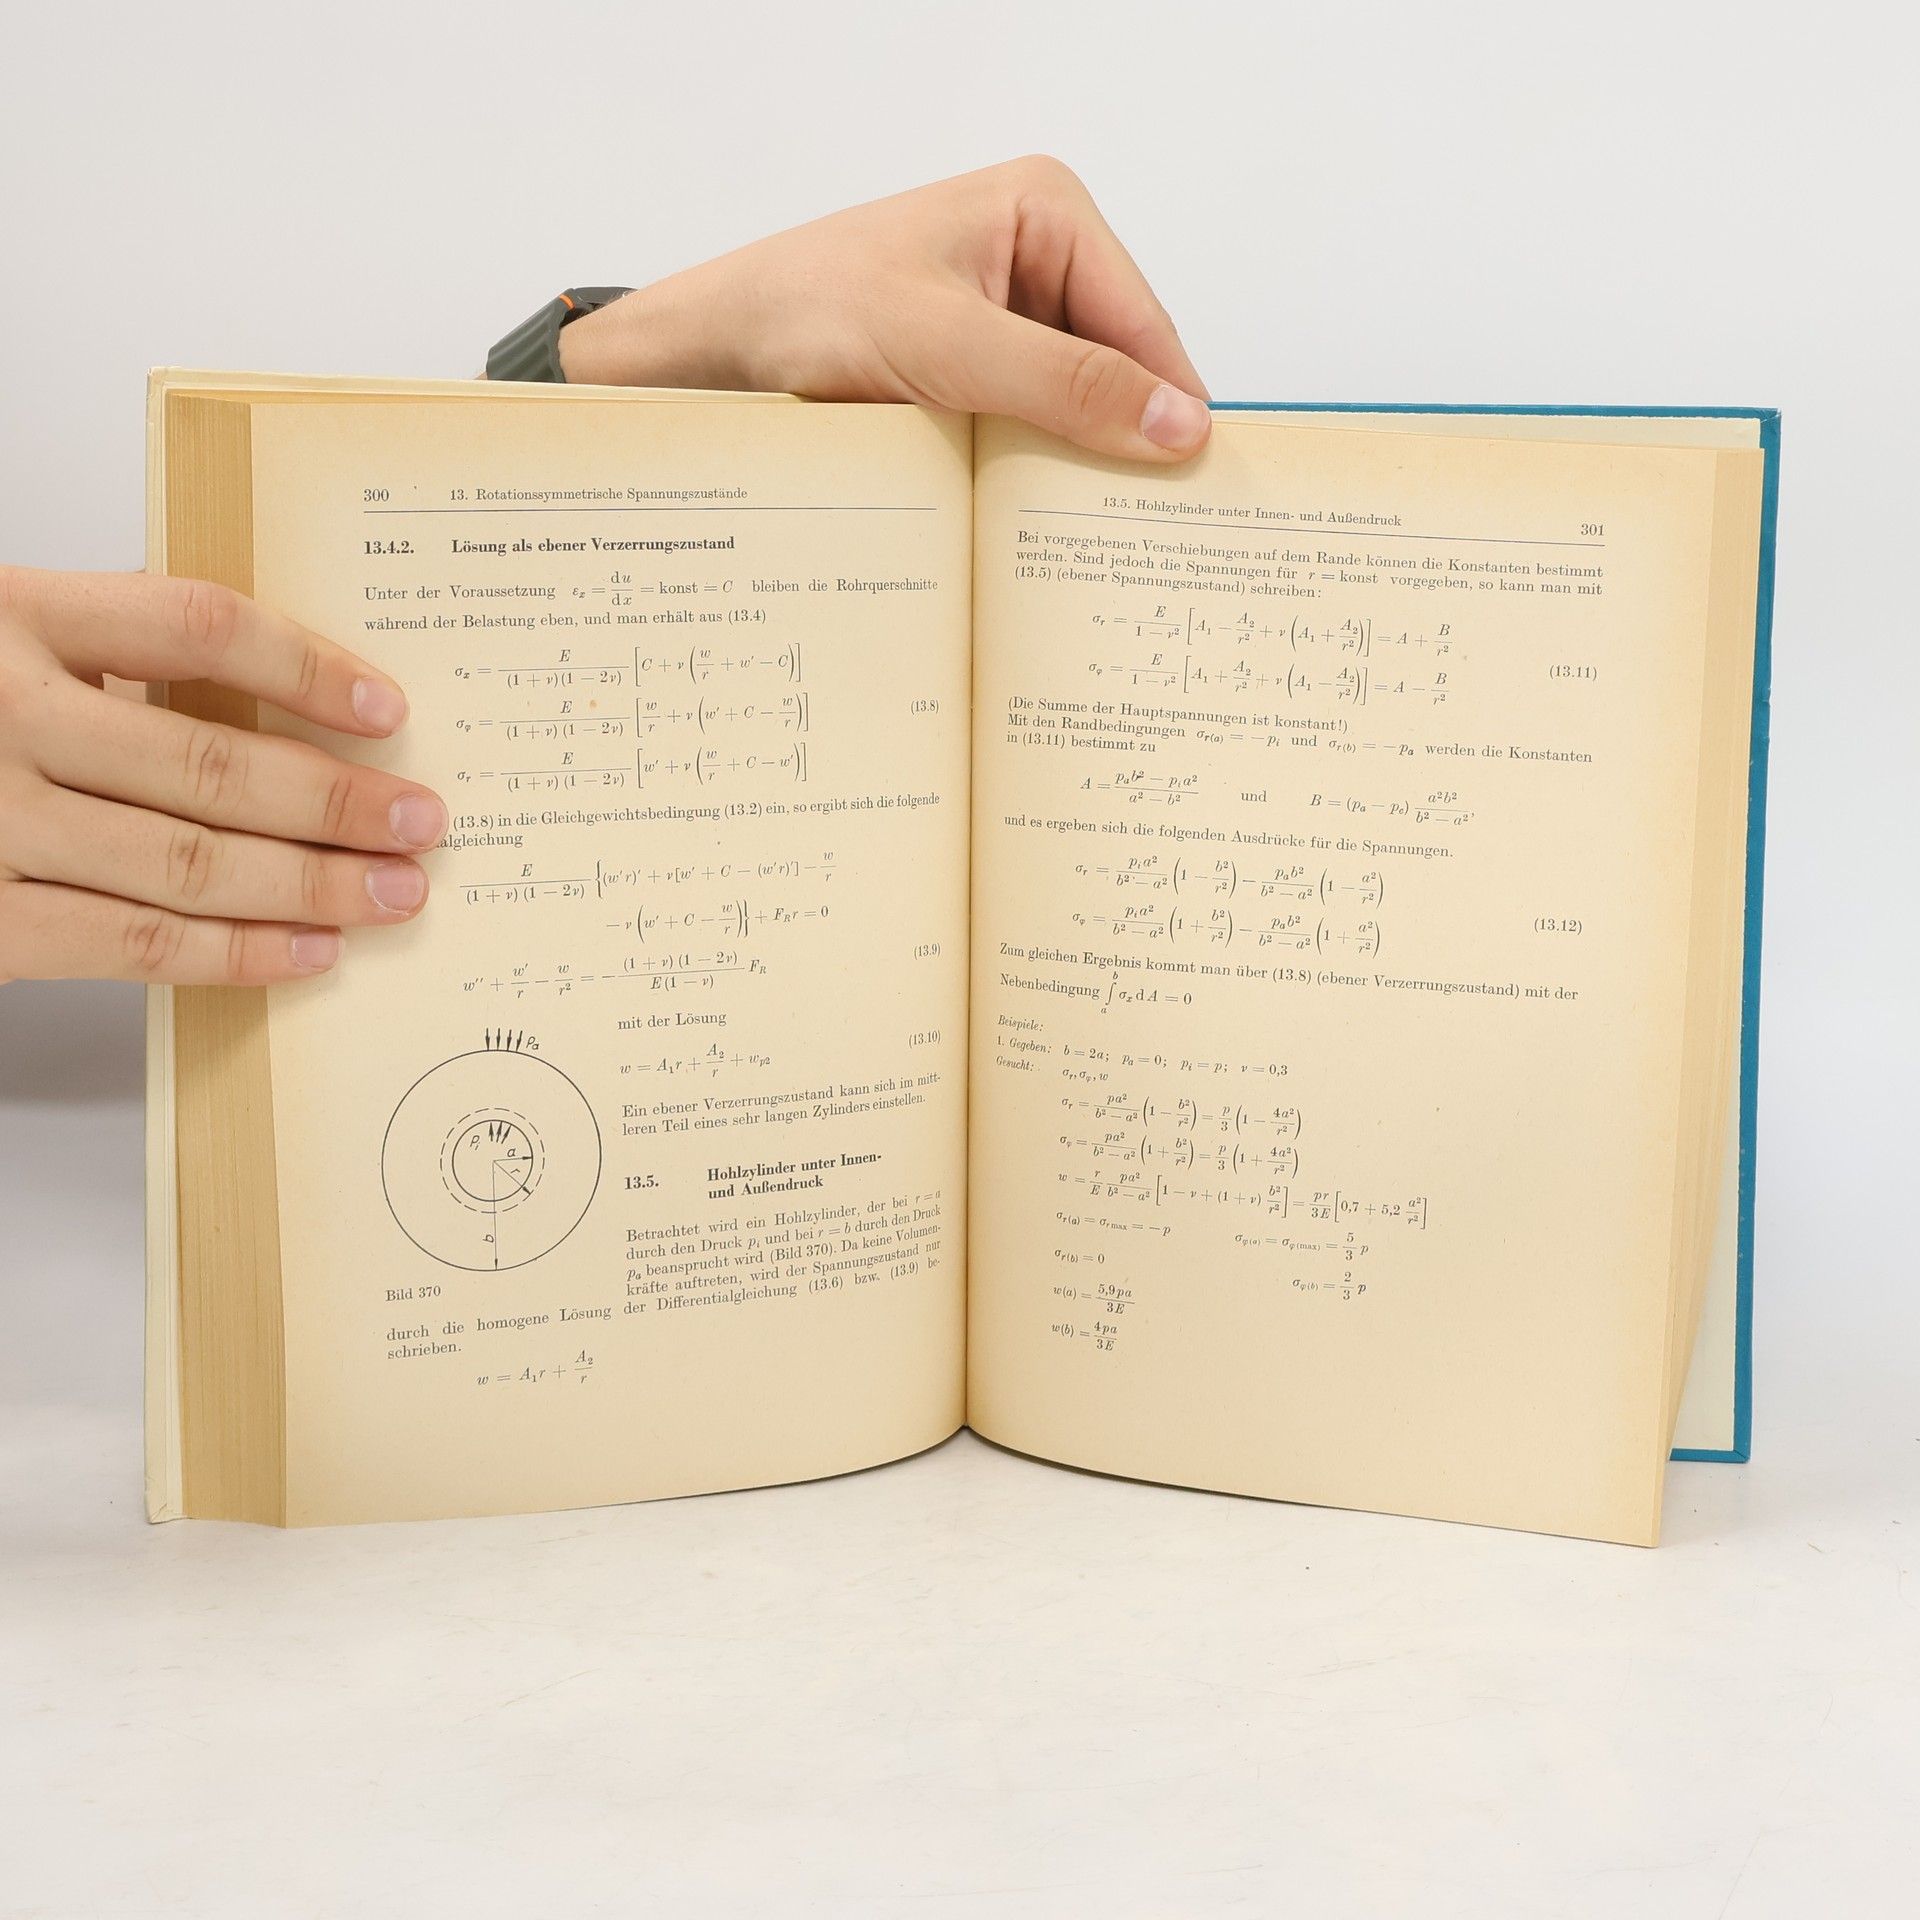 300 13. Rotationssymmetrische Spannungszustände
13.4.2. Lösung als ebener Verzerrungszustand
Unter der Voraussetzung εₓ = du/dx = konst = C bleiben die Rohrquerschnitte
während der Belastung eben, und man erhält aus (13.4)
σₓ = E/((1 + ν)(1 − 2ν)) [C + ν (w/r + w′ − C)]
σᵩ = E/((1 + ν)(1 − 2ν)) [w/r + ν (w′ + C − w/r)] (13.8)
σᵣ = E/((1 + ν)(1 − 2ν)) [w′ + ν (w/r + C − w′)]
(13.8) in die Gleichgewichtsbedingung (13.2) ein, so ergibt sich die folgende
algleichung
E/((1 + ν)(1 − 2ν)) {(w′r)′ + ν[w′ + C − (w′r)′] − w/r
− ν (w′ + C − w/r)} + F_R r = 0
w″ + w′/r − w/r² = − (1 + ν)(1 − 2ν)/(E(1 − ν)) F_R (13.9)
mit der Lösung
w = A₁r + A₂/r + w_p2 (13.10)
Ein ebener Verzerrungszustand kann sich im mitt-
leren Teil eines sehr langen Zylinders einstellen.
pₐ
pᵢ
a
r
b
Bild 370
13.5. Hohlzylinder unter Innen-
und Außendruck
Betrachtet wird ein Hohlzylinder, der bei r = a
durch den Druck pᵢ und bei r = b durch den Druck
pₐ beansprucht wird (Bild 370). Da keine Volumen-
kräfte auftreten, wird der Spannungszustand nur
durch die homogene Lösung der Differentialgleichung (13.6) bzw. (13.9) be-
schrieben.
w = A₁r + A₂/r
13.5. Hohlzylinder unter Innen- und Außendruck 301
Bei vorgegebenen Verschiebungen auf dem Rande können die Konstanten bestimmt
werden. Sind jedoch die Spannungen für r = konst vorgegeben, so kann man mit
(13.5) (ebener Spannungszustand) schreiben:
σᵣ = E/(1 − ν²) [A₁ − A₂/r² + ν (A₁ + A₂/r²)] = A + B/r²
σᵩ = E/(1 − ν²) [A₁ + A₂/r² + ν (A₁ − A₂/r²)] = A − B/r² (13.11)
(Die Summe der Hauptspannungen ist konstant!)
Mit den Randbedingungen σᵣ₍ₐ₎ = −pᵢ und σ_r(b) = −pₐ werden die Konstanten
in (13.11) bestimmt zu
A = (pₐb² − pᵢa²)/(a² − b²) und B = (pₐ − pₑ) a²b²/(b² − a²),
und es ergeben sich die folgenden Ausdrücke für die Spannungen.
σᵣ = pᵢa²/(b² − a²) (1 − b²/r²) − pₐb²/(b² − a²) (1 − a²/r²)
σᵩ = pᵢa²/(b² − a²) (1 + b²/r²) − pₐb²/(b² − a²) (1 + a²/r²) (13.12)
Zum gleichen Ergebnis kommt man über (13.8) (ebener Verzerrungszustand) mit der
Nebenbedingung ∫ₐᵇ σₓ dA = 0
Beispiele:
1. Gegeben: b = 2a; pₐ = 0; pᵢ = p; ν = 0,3
Gesucht: σᵣ, σᵩ, w
σᵣ = pa²/(b² − a²) (1 − b²/r²) = p/3 (1 − 4a²/r²)
σᵩ = pa²/(b² − a²) (1 + b²/r²) = p/3 (1 + 4a²/r²)
w = r/E pa²/(b² − a²) [1 − ν + (1 + ν) b²/r²] = pr/3E [0,7 + 5,2 a²/r²]
σ_r(a) = σ_r max = −p σ_φ(a) = σ_φ(max) = 5/3 p
σ_r(b) = 0 σ_φ(b) = 2/3 p
w(a) = 5,9pa/3E
w(b) = 4pa/3E